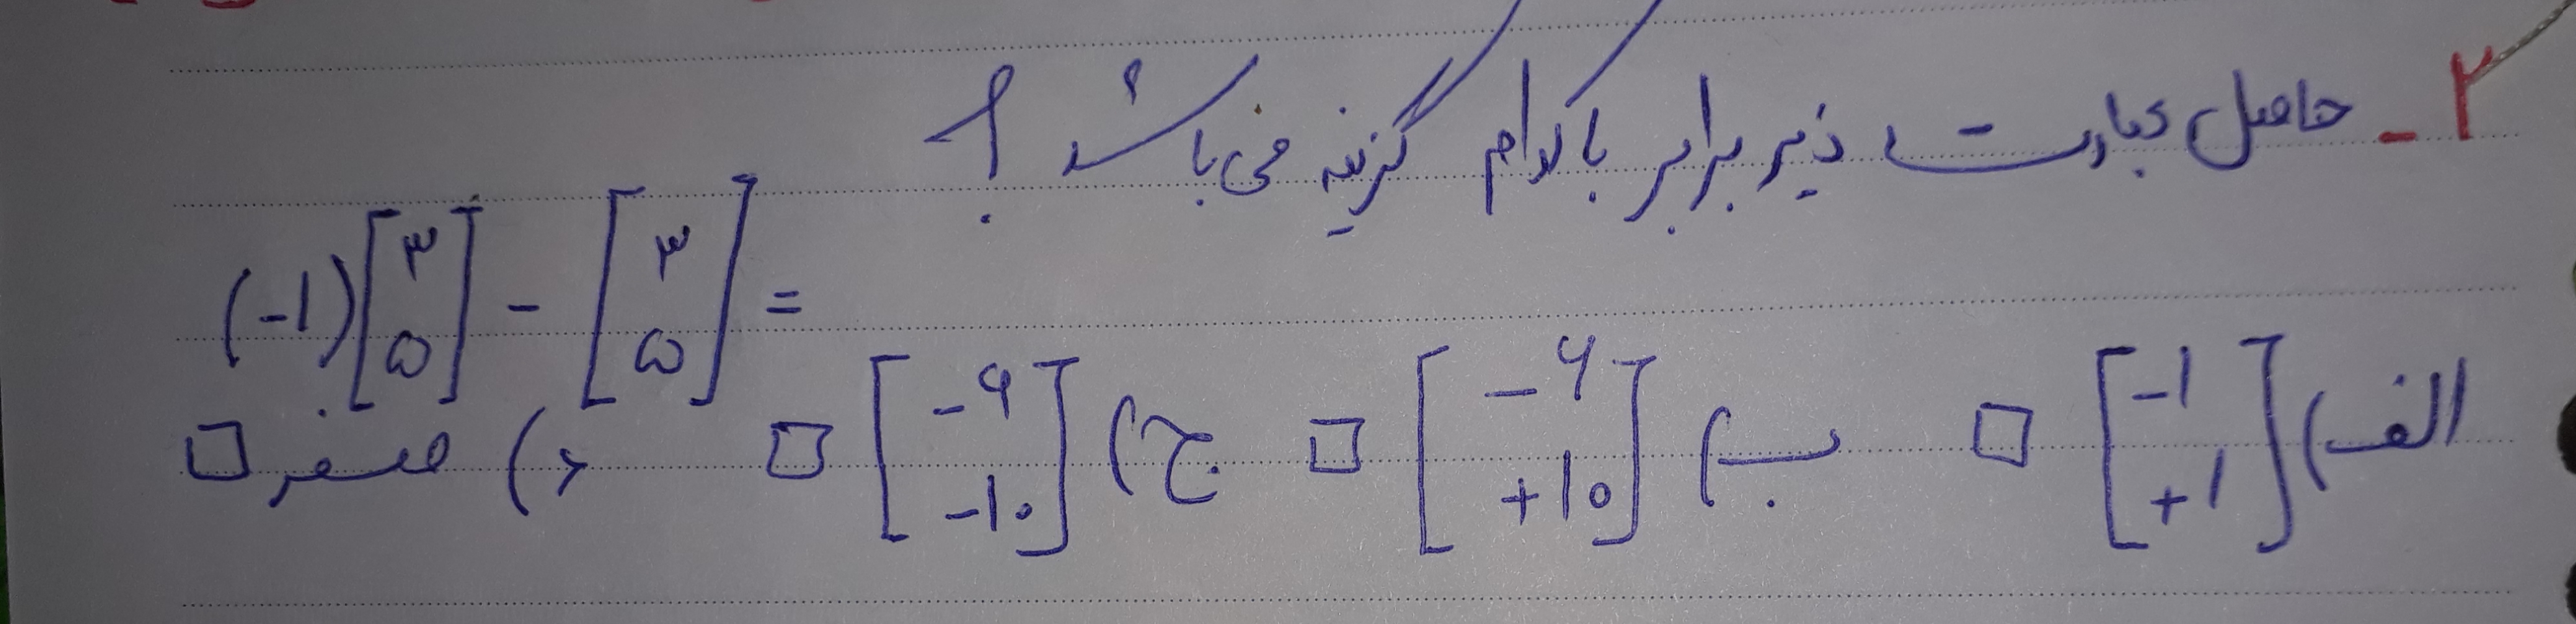 ۲ـ حاصل عبارت زیر برابر با کدام گزینه می‌باشد؟
(-1)[۳ ۵] - [۳ ۵] =
الف) [-1 +1] □ ب) [-۶ +10] □ ج) [-۶ -1۰] □ د) صفر □